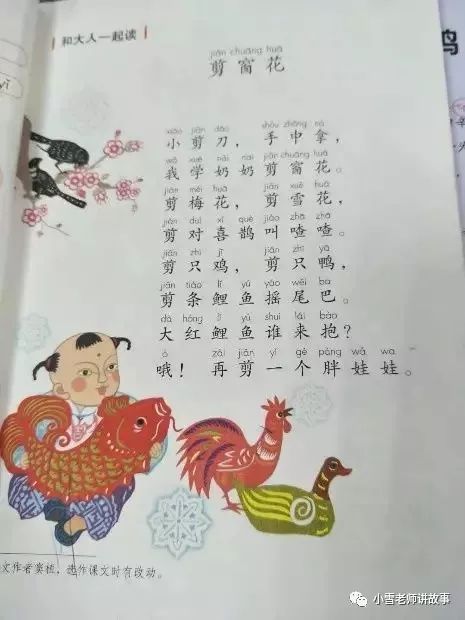 和大人一起读
jiǎn chuāng huā
剪窗花
xiǎo jiǎn dāo shǒu zhōng ná
小剪刀，手中拿，
wǒ xué nǎi nai jiǎn chuāng huā
我学奶奶剪窗花。
jiǎn méi huā jiǎn xuě huā
剪梅花，剪雪花，
jiǎn duì xǐ què jiào zhā zhā
剪对喜鹊叫喳喳。
jiǎn zhī jī jiǎn zhī yā
剪只鸡，剪只鸭，
jiǎn tiáo lǐ yú yáo wěi ba
剪条鲤鱼摇尾巴。
dà hóng lǐ yú shuí lái bào
大红鲤鱼谁来抱？
ò zài jiǎn yí gè pàng wá wa
哦！再剪一个胖娃娃。
文作者窦植，选作课文时有改动。
小雪老师讲故事
yī
鸡